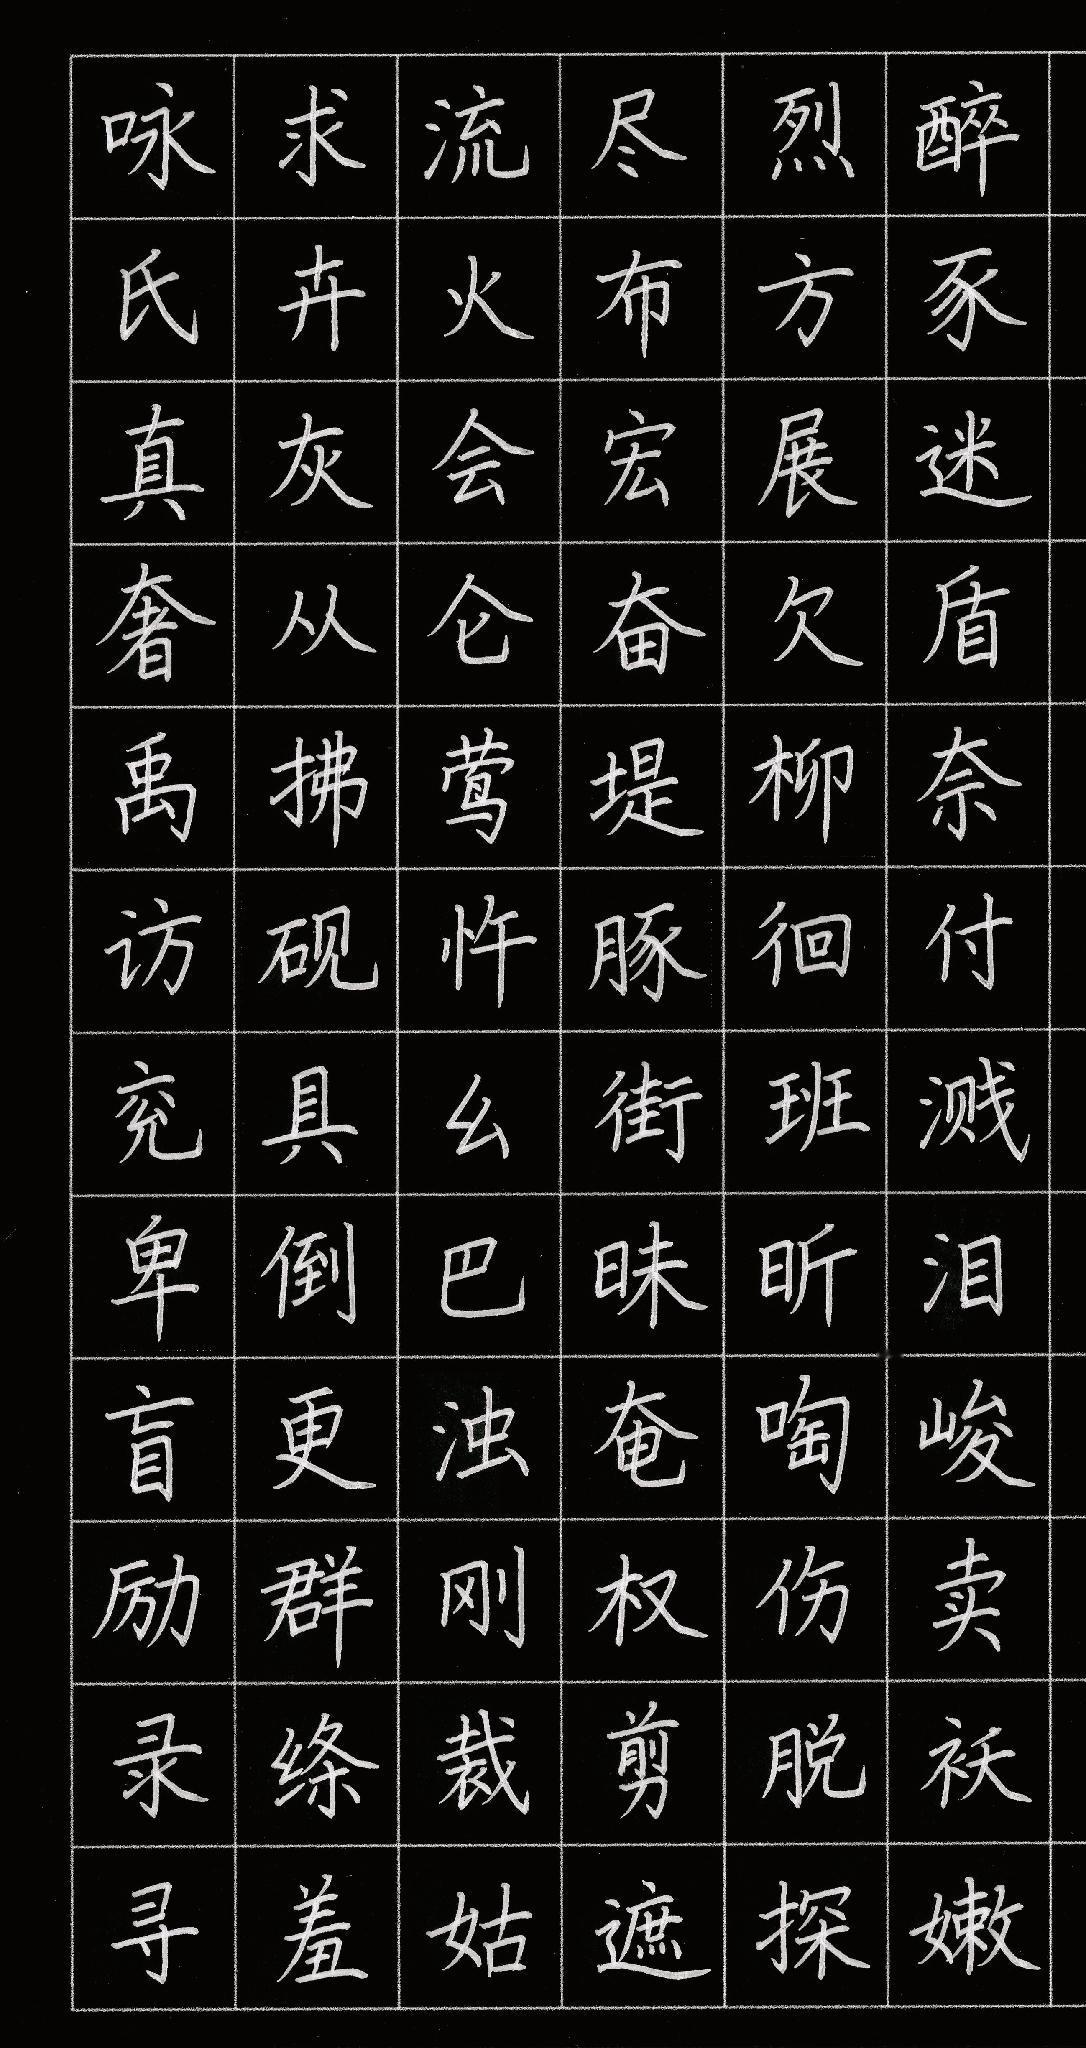 咏求流尽烈醉
氏卉火布方豕
真灰会宏展迷
奢从仑奋欠盾
禹拂莺堤柳奈
访砚忤豚徊付
兖具幺街班溅
卑倒巴昧昕泪
盲更浊奄啕峻
励群刚权伤卖
录绦裁剪脱袄
寻羞姑遮探嫩